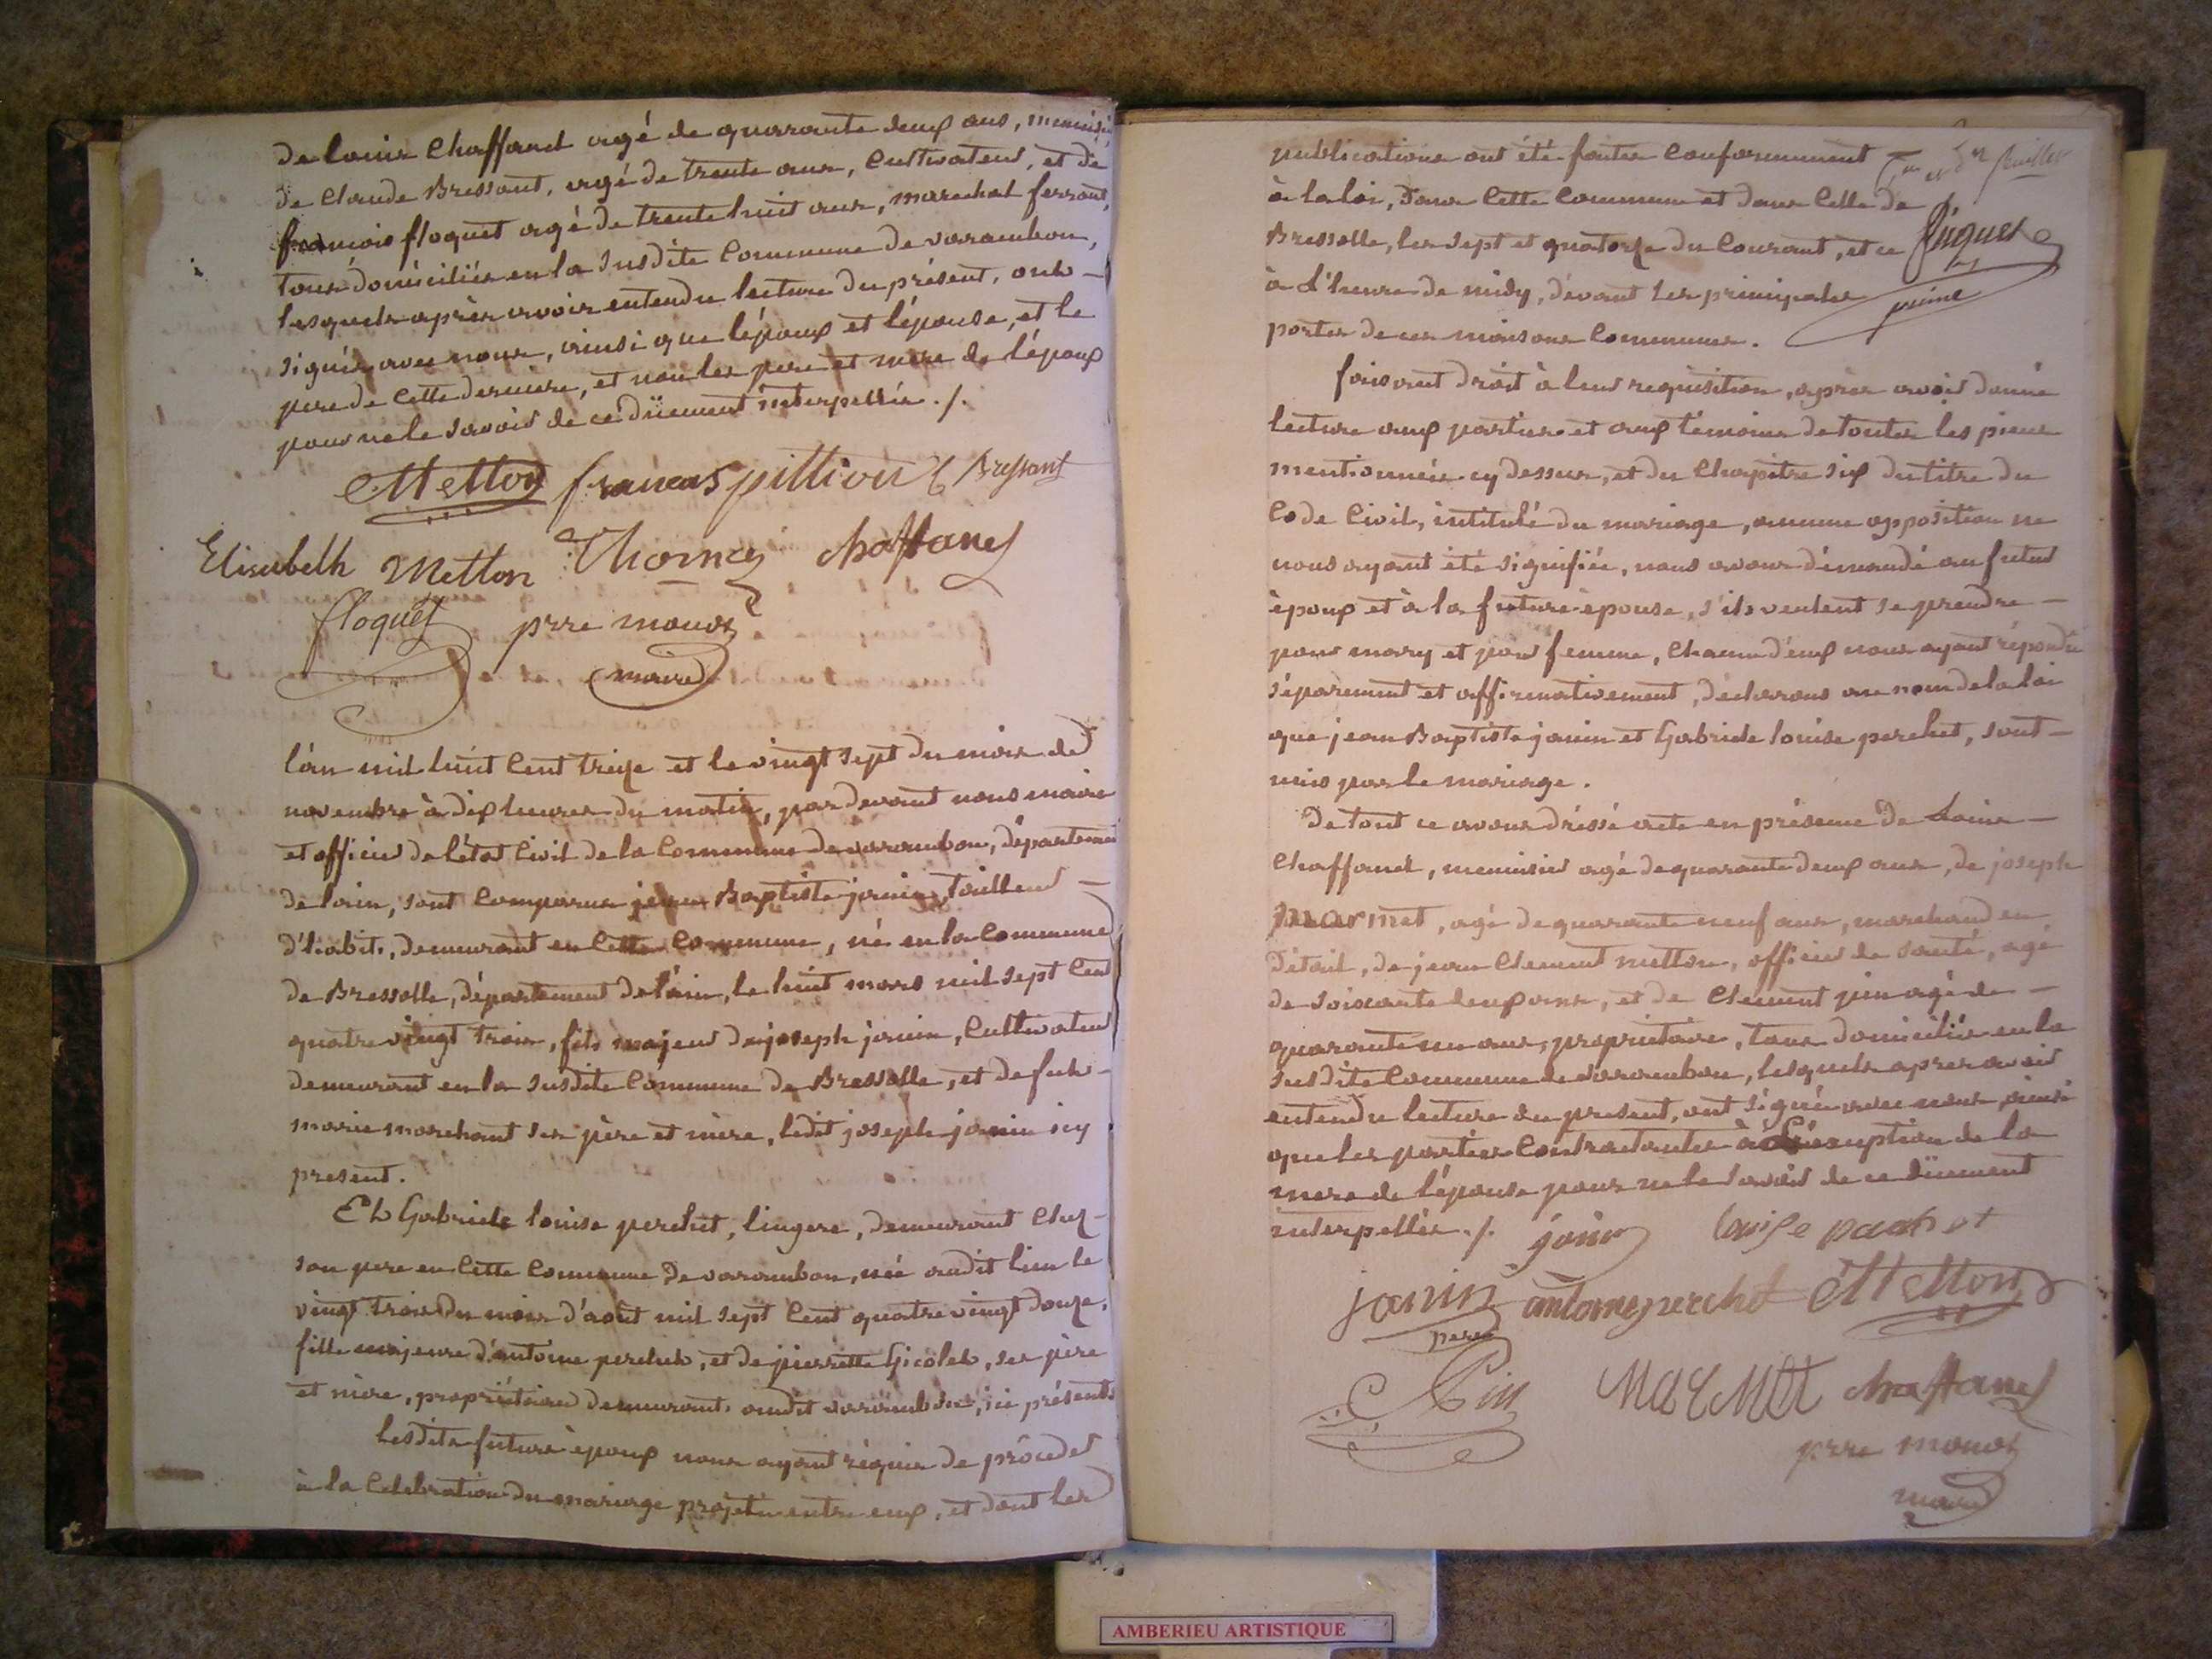 de louis Chaffand agé de quarante deux ans, menuisier,
de Claude Bressant, agé de trente ans, Cultivateur, et de
francois floquet agé de trente huit ans, marechal ferrant,
tous domiciliés en la susdite Commune de varambon,
lesquels après avoir entendu lecture du présent, ont
signés avec nous, ainsi que l'époux et l'épouse, et le
pere de cette derniere, et non les pere et mere de l'époux
pour ne le savoir de ce düement interpellés ./.
Metton francois pittion C Bressant
Elisabelh Metton Thomas chaffand
floquet prre monot
maire
l'an mil huit Cent treize et le vingt sept du mois de
novembre à dix heures du matin, par devant nous maire
et officier de l'état Civil de la Commune de varambon, départemen
de lain, sont Comparus jean Baptiste janin, tailleur
d'habits, demeurant en Cette Commune, né en la Commune
de Bressolle, département de l'ain, le huit mars mil sept Cent
quatre vingt trois, fils majeur de joseph janin, Cultivateur
demeurant en la susdite Commune de Bressolle, et de fuh
marie marchant ses père et mère, ledit joseph janin icy
present.
Et Gabriele louise perchet, lingere, demeurant Chez
son pere en Cette Commune de varambon, née audit lieu le
vingt trois du mois d'août mil sept Cent quatre vingt douze,
fille majeure d'antoine perchet, et de pierrette Gicolet, ses père
et mère, propriétaires demeurants audit varambon, ici présents
Lesdits futurs époux nous ayant réquis de procéder
à la Célébration du mariage projetté entre eux, et dont les
publications ont été faites Conformement
à la loi, dans Cette Commune et dans Celle de
Bressolle, les sept et quatorze du Courant, et ce
à l'heure de midy, devant les principales
portes de ces maisons Communes.
feuillet
faisant droit à leur requisition, après avoir donné
lecture aux parties et aux témoins de toutes les pieces
mentionnées cy dessus, et du Chapitre six du titre du
Code Civil, intitulé du mariage, aucune opposition ne
nous ayant été signifiée, nous avons démandé au futur
époux et à la future épouse, s'ils veulent se prendre
pour mary et pour femme, Chacun d'eux nous ayant répondu
séparement et affirmativement, déclarons au nom de la loi
que jean Baptiste janin et Gabriele louise perchet, sont
unis par le mariage.
De tout ce avons dréssé acte en présence de Louis
Chaffand, menuisier agé de quarante deux ans, de joseph
marmet, agé de quarante neuf ans, marchand en
détail, de jean Clement metton, officier de santé, agé
de soixante deux ans, et de Clément pin agé de
quarante un ans, propriétaire, tous domiciliés en la
susdite Commune de varambon, lesquels apres avoir
entendu lecture du present, ont signés avec nous ainsi
que les parties Contractantes à l'éxception de la
mere de l'épouse pour ne le savoir de ce düement
interpellée ./. janin louise parchet
janin antoine perchet Metton
pere
C Pin MarMet chaffand
prre monot
maire
AMBERIEU ARTISTIQUE